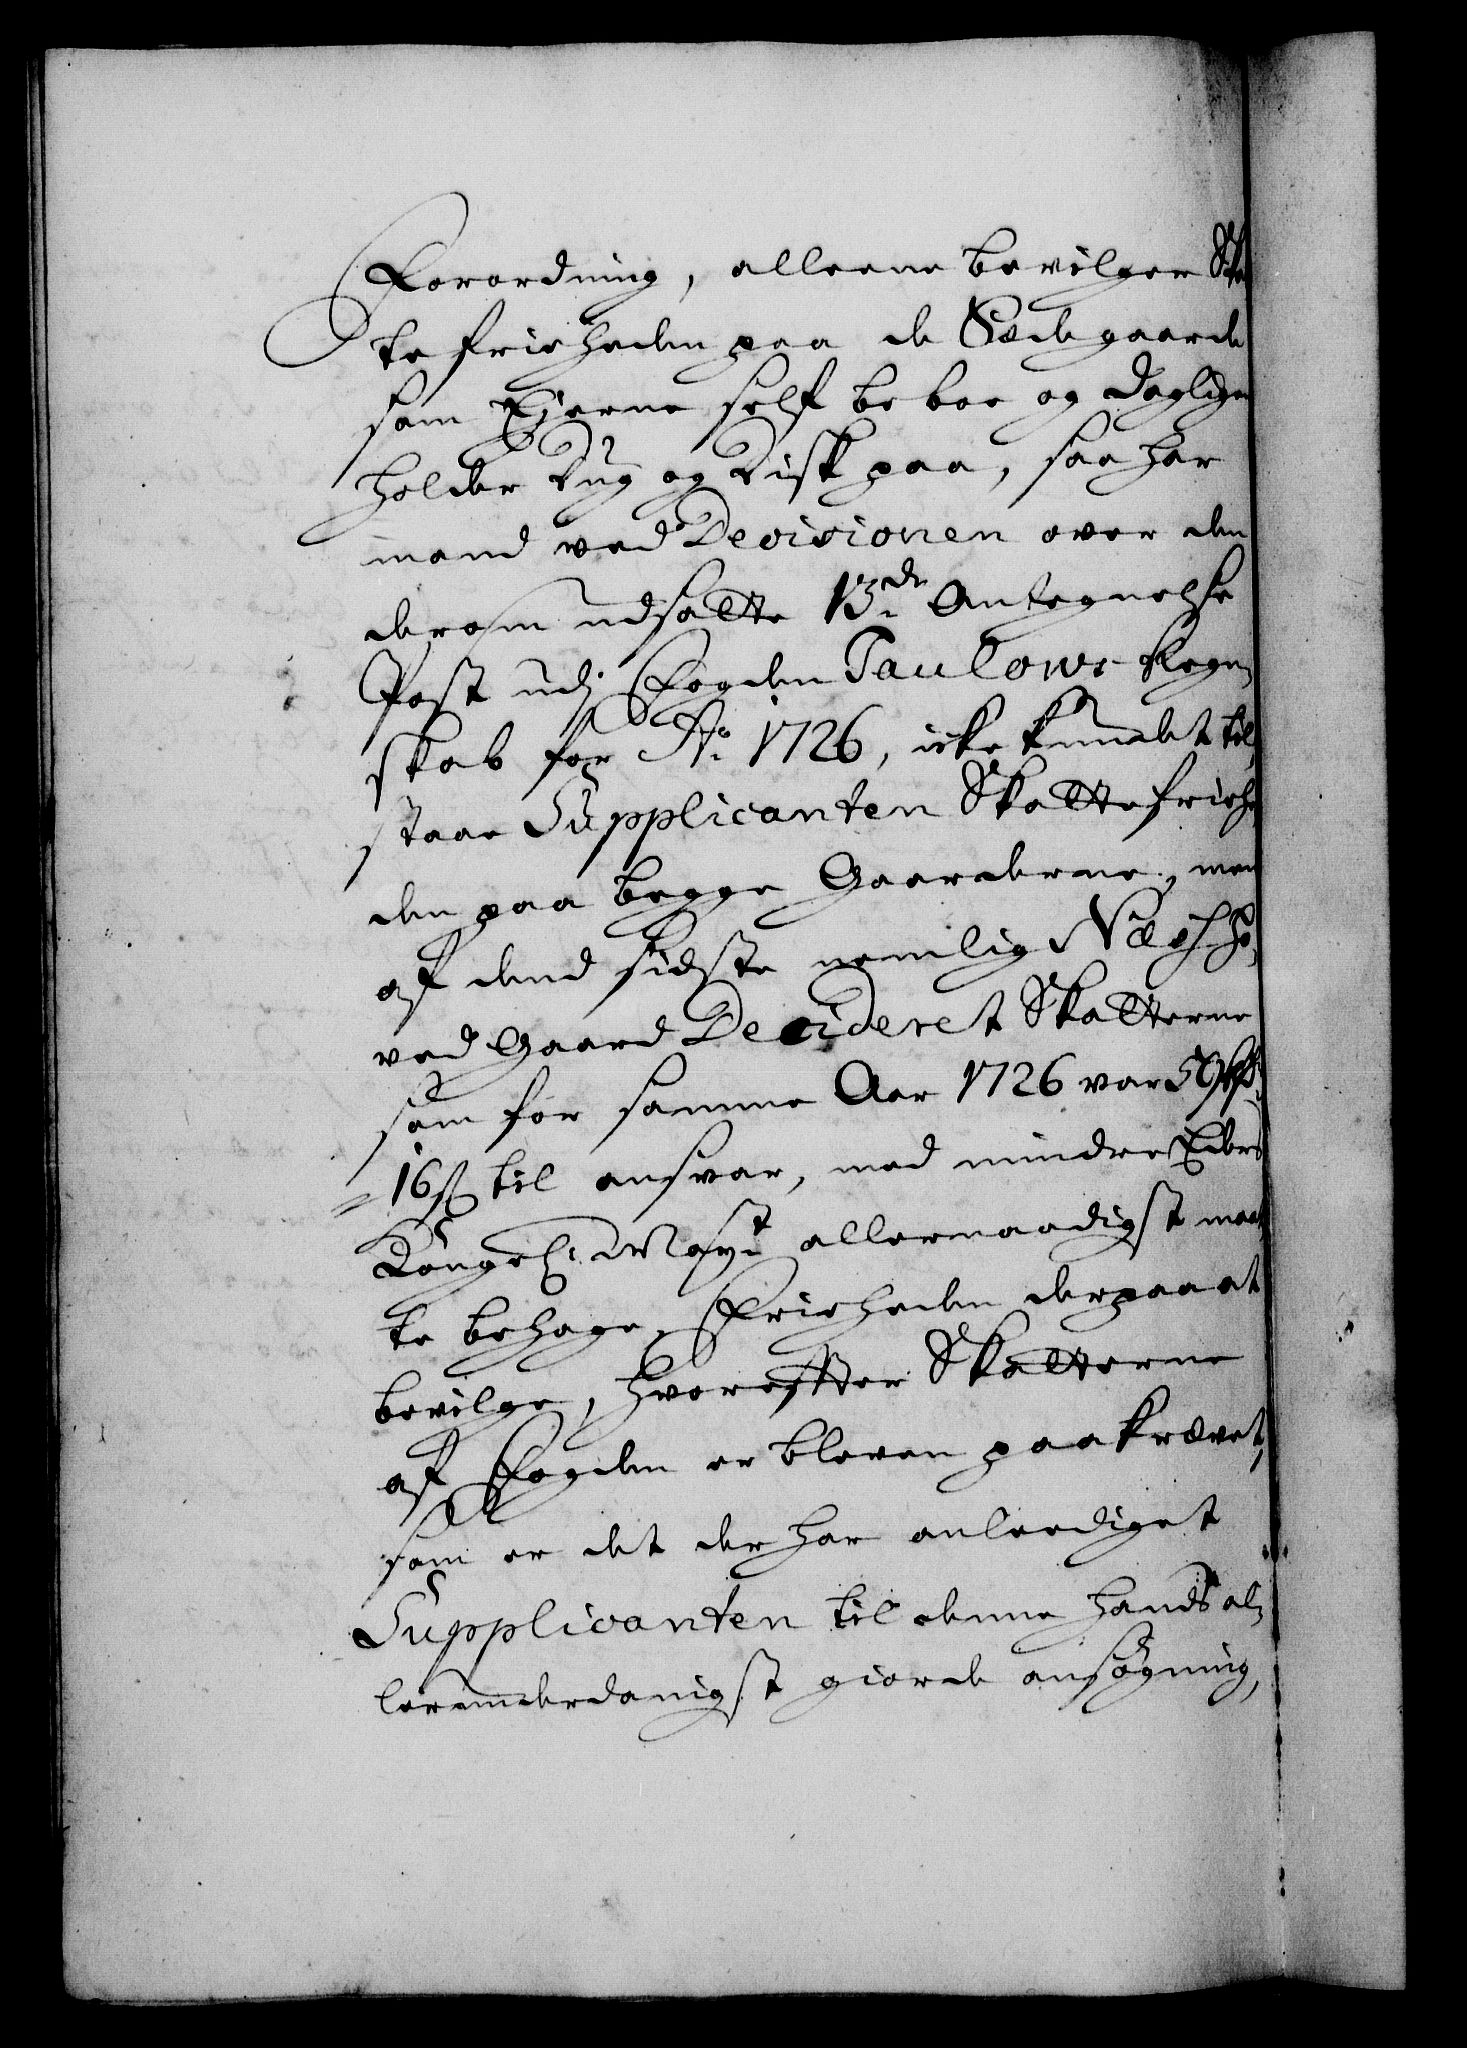 Forordning, alleene bevilger Ska
te friheden paa de Sædegaarde
som Ejerne self beboe og dagligen
holder Dug og Disk paa, saa har
mand ved Decisionen over den
derom udsatte 13de Antegnelse
Post udj Fogden Paulows Regen
skab for Ao 1726, icke kundet til
staae Supplicanten Skattefriehe
den paa begge Gaarderne, men
af dend sidste nemlig Næs ho
ved Gaard Decideret Skatterne
som for samme Aar 1726 var 59 Rdr
16 s til ansvar, med mindre Eders
Kongel. Mayt allernaadigst maat
te behage, Frieheden derpaa at
bevilge, hvorefter Skatterne
af Fogden er bleven paakrævet,
som er det der har anleediget
Supplicanten til denne hands al
lerunderdanigst giorde ansøgning,